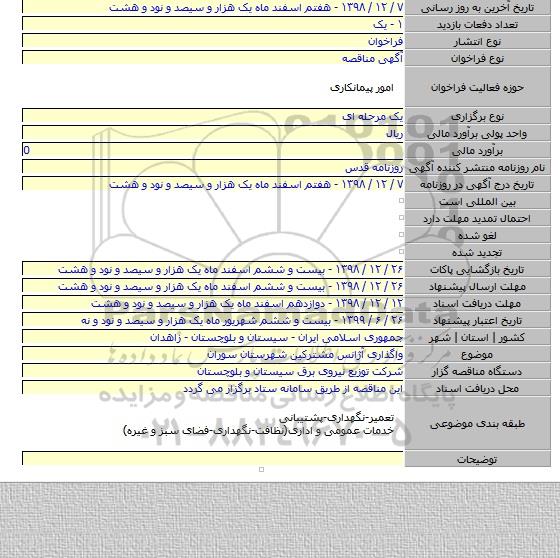 تاریخ آخرین به روز رسانی ۷ / ۱۲ / ۱۳۹۸ - هفتم اسفند ماه یک هزار و سیصد و نود و هشت
تعداد دفعات بازدید ۱ - یک
نوع انتشار فراخوان
نوع فراخوان آگهی مناقصه
حوزه فعالیت فراخوان امور پیمانکاری
نوع برگزاری یک مرحله ای
واحد پولی برآورد مالی ریال
برآورد مالی 0
نام روزنامه منتشر کننده آگهی روزنامه قدس
تاریخ درج آگهی در روزنامه ۷ / ۱۲ / ۱۳۹۸ - هفتم اسفند ماه یک هزار و سیصد و نود و هشت
بین المللی است
احتمال تمدید مهلت دارد
لغو شده
تجدید شده
تاریخ بازگشایی پاکات ۲۶ / ۱۲ / ۱۳۹۸ - بیست و ششم اسفند ماه یک هزار و سیصد و نود و هشت
مهلت ارسال پیشنهاد ۲۶ / ۱۲ / ۱۳۹۸ - بیست و ششم اسفند ماه یک هزار و سیصد و نود و هشت
مهلت دریافت اسناد ۱۲ / ۱۲ / ۱۳۹۸ - دوازدهم اسفند ماه یک هزار و سیصد و نود و هشت
تاریخ اعتبار پیشنهاد ۲۶ / ۶ / ۱۳۹۹ - بیست و ششم شهریور ماه یک هزار و سیصد و نود و نه
کشور | استان | شهر جمهوری اسلامی ایران - سیستان و بلوچستان - زاهدان
موضوع واگذاری آژانس مشترکین شهرستان سوران
دستگاه مناقصه گزار شرکت توزیع نیروی برق سیستان و بلوچستان
محل دریافت اسناد این مناقصه از طریق سامانه ستاد برگزار می گردد
طبقه بندی موضوعی تعمیر-نگهداری-پشتیبانی
خدمات عمومی و اداری(نظافت-نگهداری-فضای سبز و غیره)
توضیحات
ParsNamadData
پایگاه اطلاع رسانی مناقصه و مزایده
۰۲۱-۸۸۳۴۹۶۷۰-۵